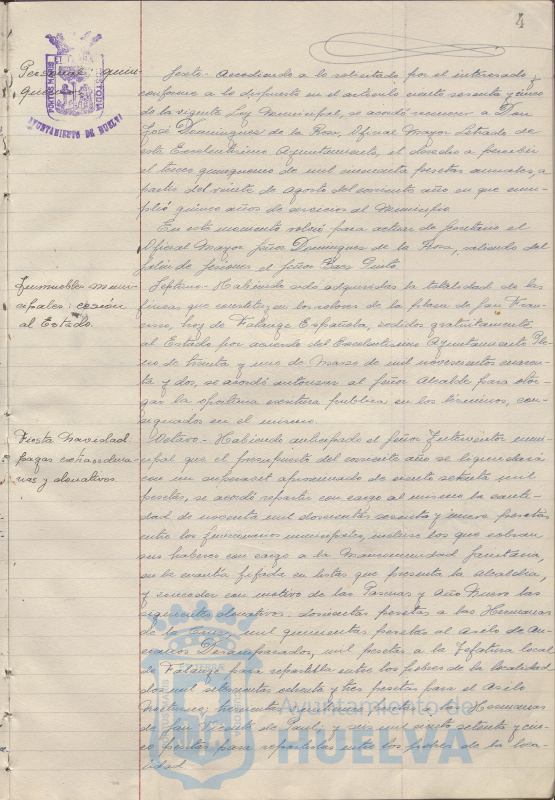 4
PORTUS MARIS
CUSTODIA
AYUNTAMIENTO DE HUELVA
Personal quin-
quenios
Sexto - Accediendo a lo solicitado por el interesado y
conforme a lo dispuesto en el artículo ciento sesenta y cinco
de la vigente Ley Municipal, se acordó reconocer a Don
José Domínguez de la Rosa, Oficial Mayor Letrado de
este Excelentísimo Ayuntamiento, el derecho a percibir
el tercer quinquenio de mil pesetas anuales, a
partir del veinte de agosto del corriente año en que cum-
plió quince años de servicios al Municipio.
En este momento volvió para actuar de Secretario el
Oficial Mayor Señor Domínguez de la Rosa, saliendo del
Salón de Sesiones el Señor Baez Pinto
Inmuebles muni-
cipales: cesión
al Estado.
Séptimo - Habiendo sido adquiridas la totalidad de las
fincas que constituyen los solares de la plaza de San Fran-
cisco, hoy de Falange Española, cedidos gratuitamente
al Estado por acuerdo del Excelentísimo Ayuntamiento Ple-
no de treinta y uno de Marzo de mil novecientos cuaren-
ta y dos, se acordó autorizar al Señor Alcalde para otor-
gar la oportuna escritura pública en los términos con-
signados en el mismo.
Fiesta Navidad
pagas extraordina-
rias y donativos
Octavo - Habiendo anticipado el Señor Interventor muni-
cipal que el presupuesto del corriente año se liquidará
con un superavit aproximado de ciento setenta mil
pesetas, se acordó repartir con cargo al mismo la canti-
dad de noventa mil doscientas sesenta y nueve pesetas
entre los funcionarios municipales, incluso los que cobran
sus haberes con cargo a la Mancomunidad Sanitaria,
en la cuantía fijada en listas que presenta la Alcaldía,
y conceder con motivo de las Pascuas y Año Nuevo los
siguientes donativos: doscientas pesetas a las Hermanas
de la Cruz, mil quinientas pesetas al Asilo de An-
cianos Desamparados, mil pesetas a la Jefatura local
de Falange para repartirla entre los pobres de la localidad
dos mil setecientas setenta y tres pesetas para el Asilo
Nocturno; trescientas a las Hermanas
de San Vicente de Paul y seis mil ciento setenta y cin-
co pesetas para repartirlas entre los pobres de la loca-
lidad.
Ayuntamiento de
HUELVA